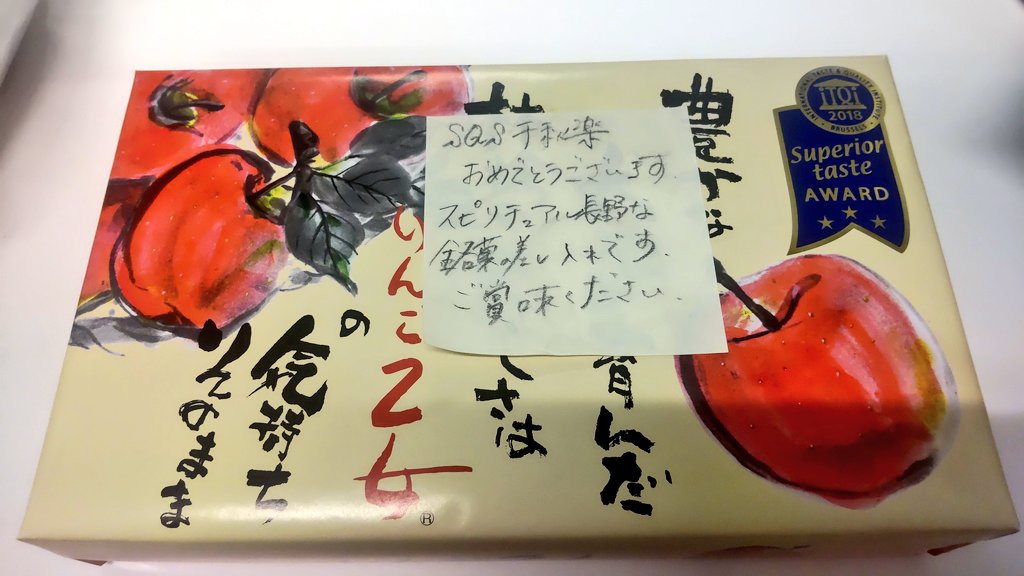 SQS千秋楽
おめでとうございます.
スピリチュアル長野な
銘菓の差し入れです.
ご賞味ください.
豊かな
育んだ
しさは
りんご乙女
の
気持ち
そのまま
®
INTERNATIONAL TASTE & QUALITY INSTITUTE
iTQi
2018
BRUSSELS
Superior
taste
AWARD